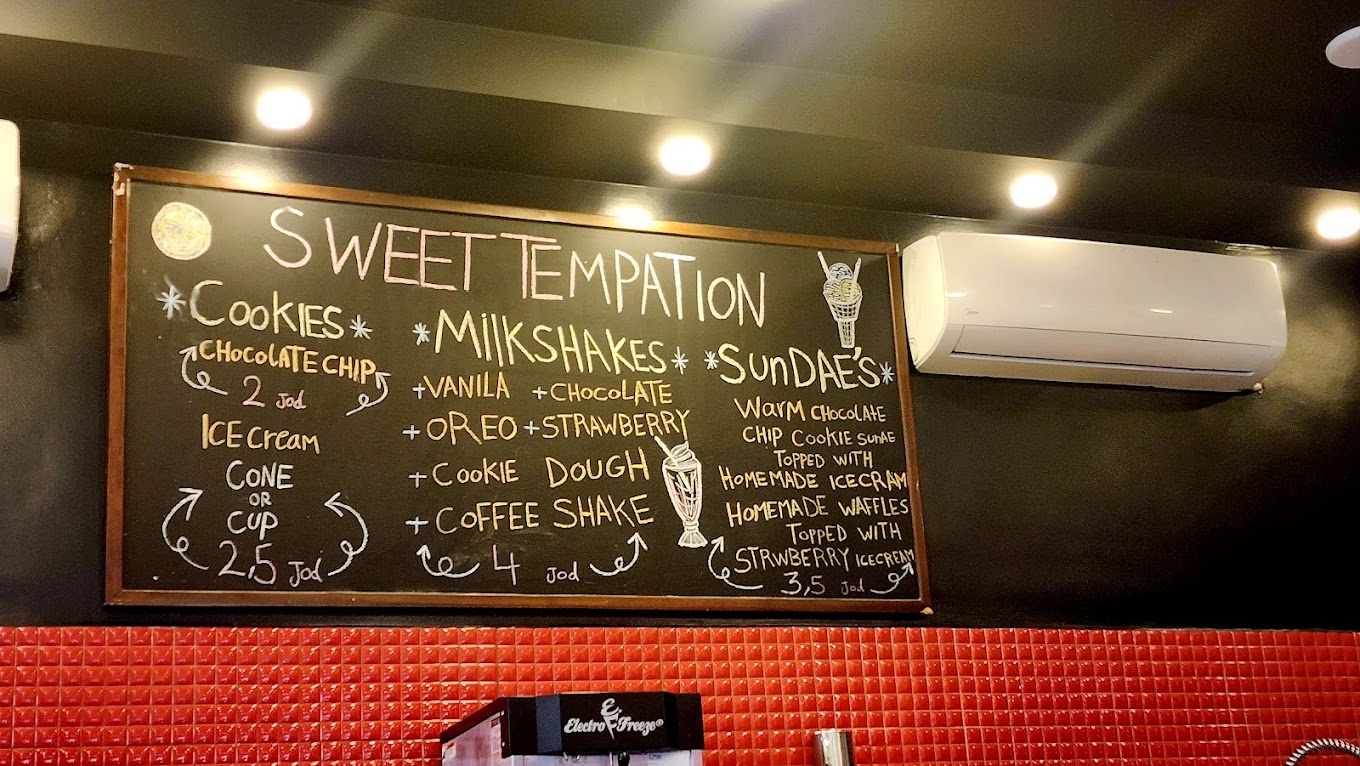 SWEET TEMPATION
COOKIES
CHOCOLATE CHIP
2 Jod
ICE CREAM
CONE
OR
CUP
2,5 Jod
MilKSHAKES
+VANILA +CHOCOLATE
+OREO +STRAWBERRY
+COOKIE DOUGH
+COFFEE SHAKE
4 Jod
SunDAE'S
WARM CHOCOLATE
CHIP COOKIE SUNAE
TOPPED WITH
HOMEMADE ICECRAM
HOMEMADE WAFFLES
TOPPED WITH
STRWBERRY ICECREAM
3,5 Jod
Electro Freeze®